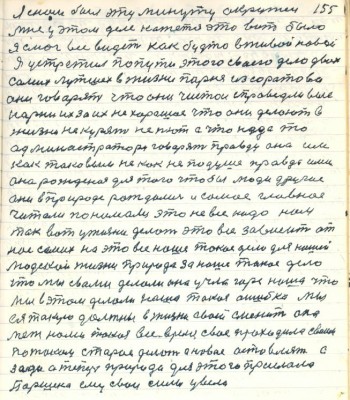 Я своим был эту минуту окружен 155
мне у этом деле нажета это вот было
Я смог все видеть как будто в живой новой
Я устретил по пути этого своего дела двух
самих лутших в жизни парня из саратова
они говарять что они читой справедливые
парни их за их не харашае что они делают в
жизни не курять не пют а что када это
администратора говорят правду она им
как таковым не как не по душе правда ими
она рожденоя для того чтобы люди другие
они в природе рождалися самое главное
читали понимали это не все надо нам
так вот умязни делают это все зависит от
нас самих на это все наше такое дело для нашей
людской жизни природа за наше такое дело
что мы с вами делали она учла горе наша что
мы в этом делали наша такая ошибка мы
ея такую должны в жизни своей сменить она
меж нами такая все время свае праходила своих
потоках старае делают а новае оставляют с
зади а теперь природа для этого прислала
Паршека ему свои силы увела